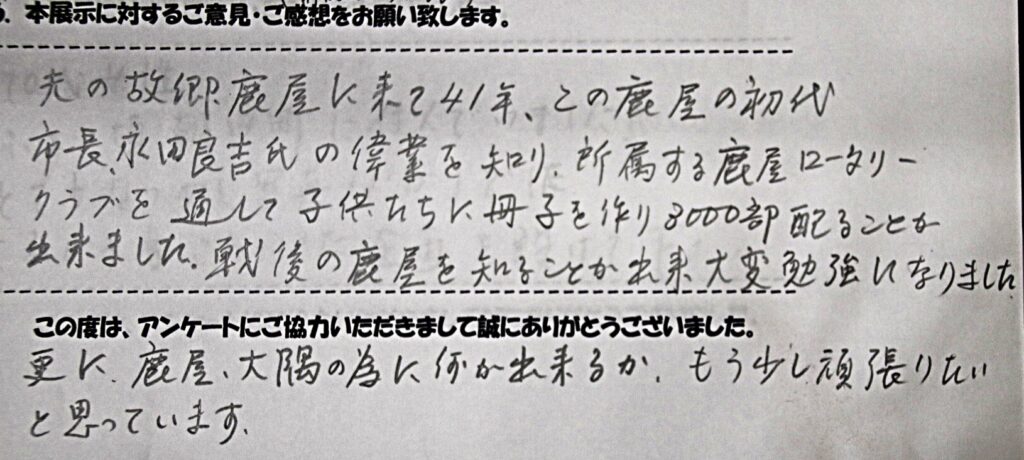 5. 本展示に対するご意見・ご感想をお願い致します。
夫の故郷鹿屋に来て41年、この鹿屋の初代
市長、永田良吉氏の偉業を知り、所属する鹿屋ロータリー
クラブを通して子供たちに冊子を作り3000部配ることが
出来ました。戦後の鹿屋を知ることが出来大変勉強になりました
この度は、アンケートにご協力いただきまして誠にありがとうございました。
更に、鹿屋、大隅の為に何が出来るか、もう少し頑張りたい
と思っています。